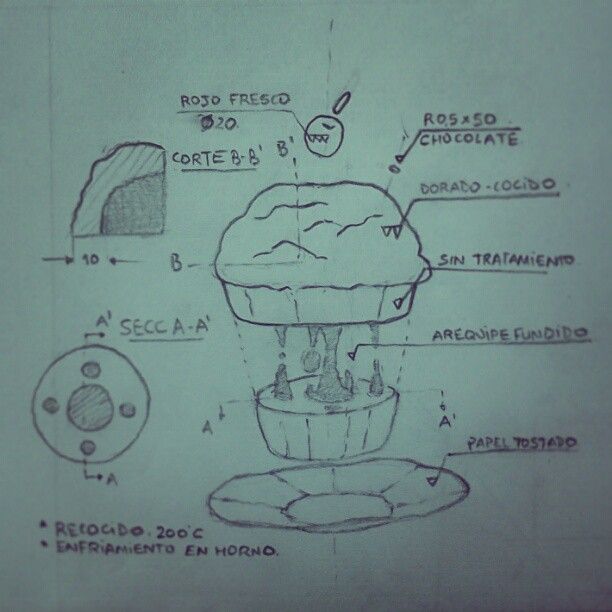 ROJO FRESCO
Ø20.
R0,5x50
CHOCOLATE
CORTE B-B'
B'
DORADO-COCIDO
SIN TRATAMIENTO
10
B
A'
SECC A-A'
AREQUIPE FUNDIDO
A
A'
PAPEL TOSTADO
A
* RECOCIDO. 200°C
* ENFRIAMIENTO EN HORNO.